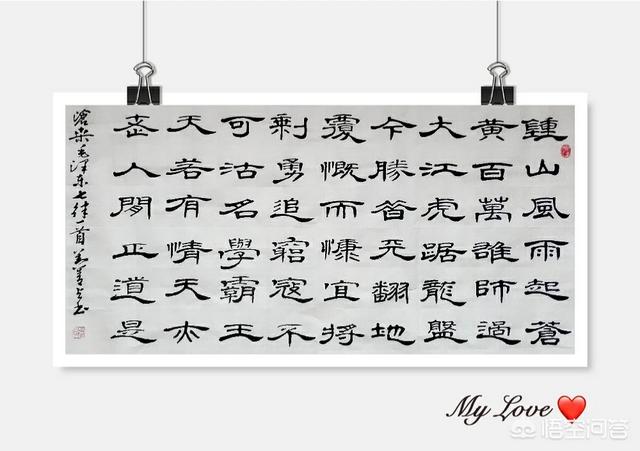 鍾山風雨起蒼
黃百萬雄師過
大江虎踞龍盤
今勝昔天翻地
覆慨而慷宜將
剩勇追窮寇不
可沽名學霸王
天若有情天亦
老人間正道是
滄桑毛泽东七律一首
My Love
悟空问答